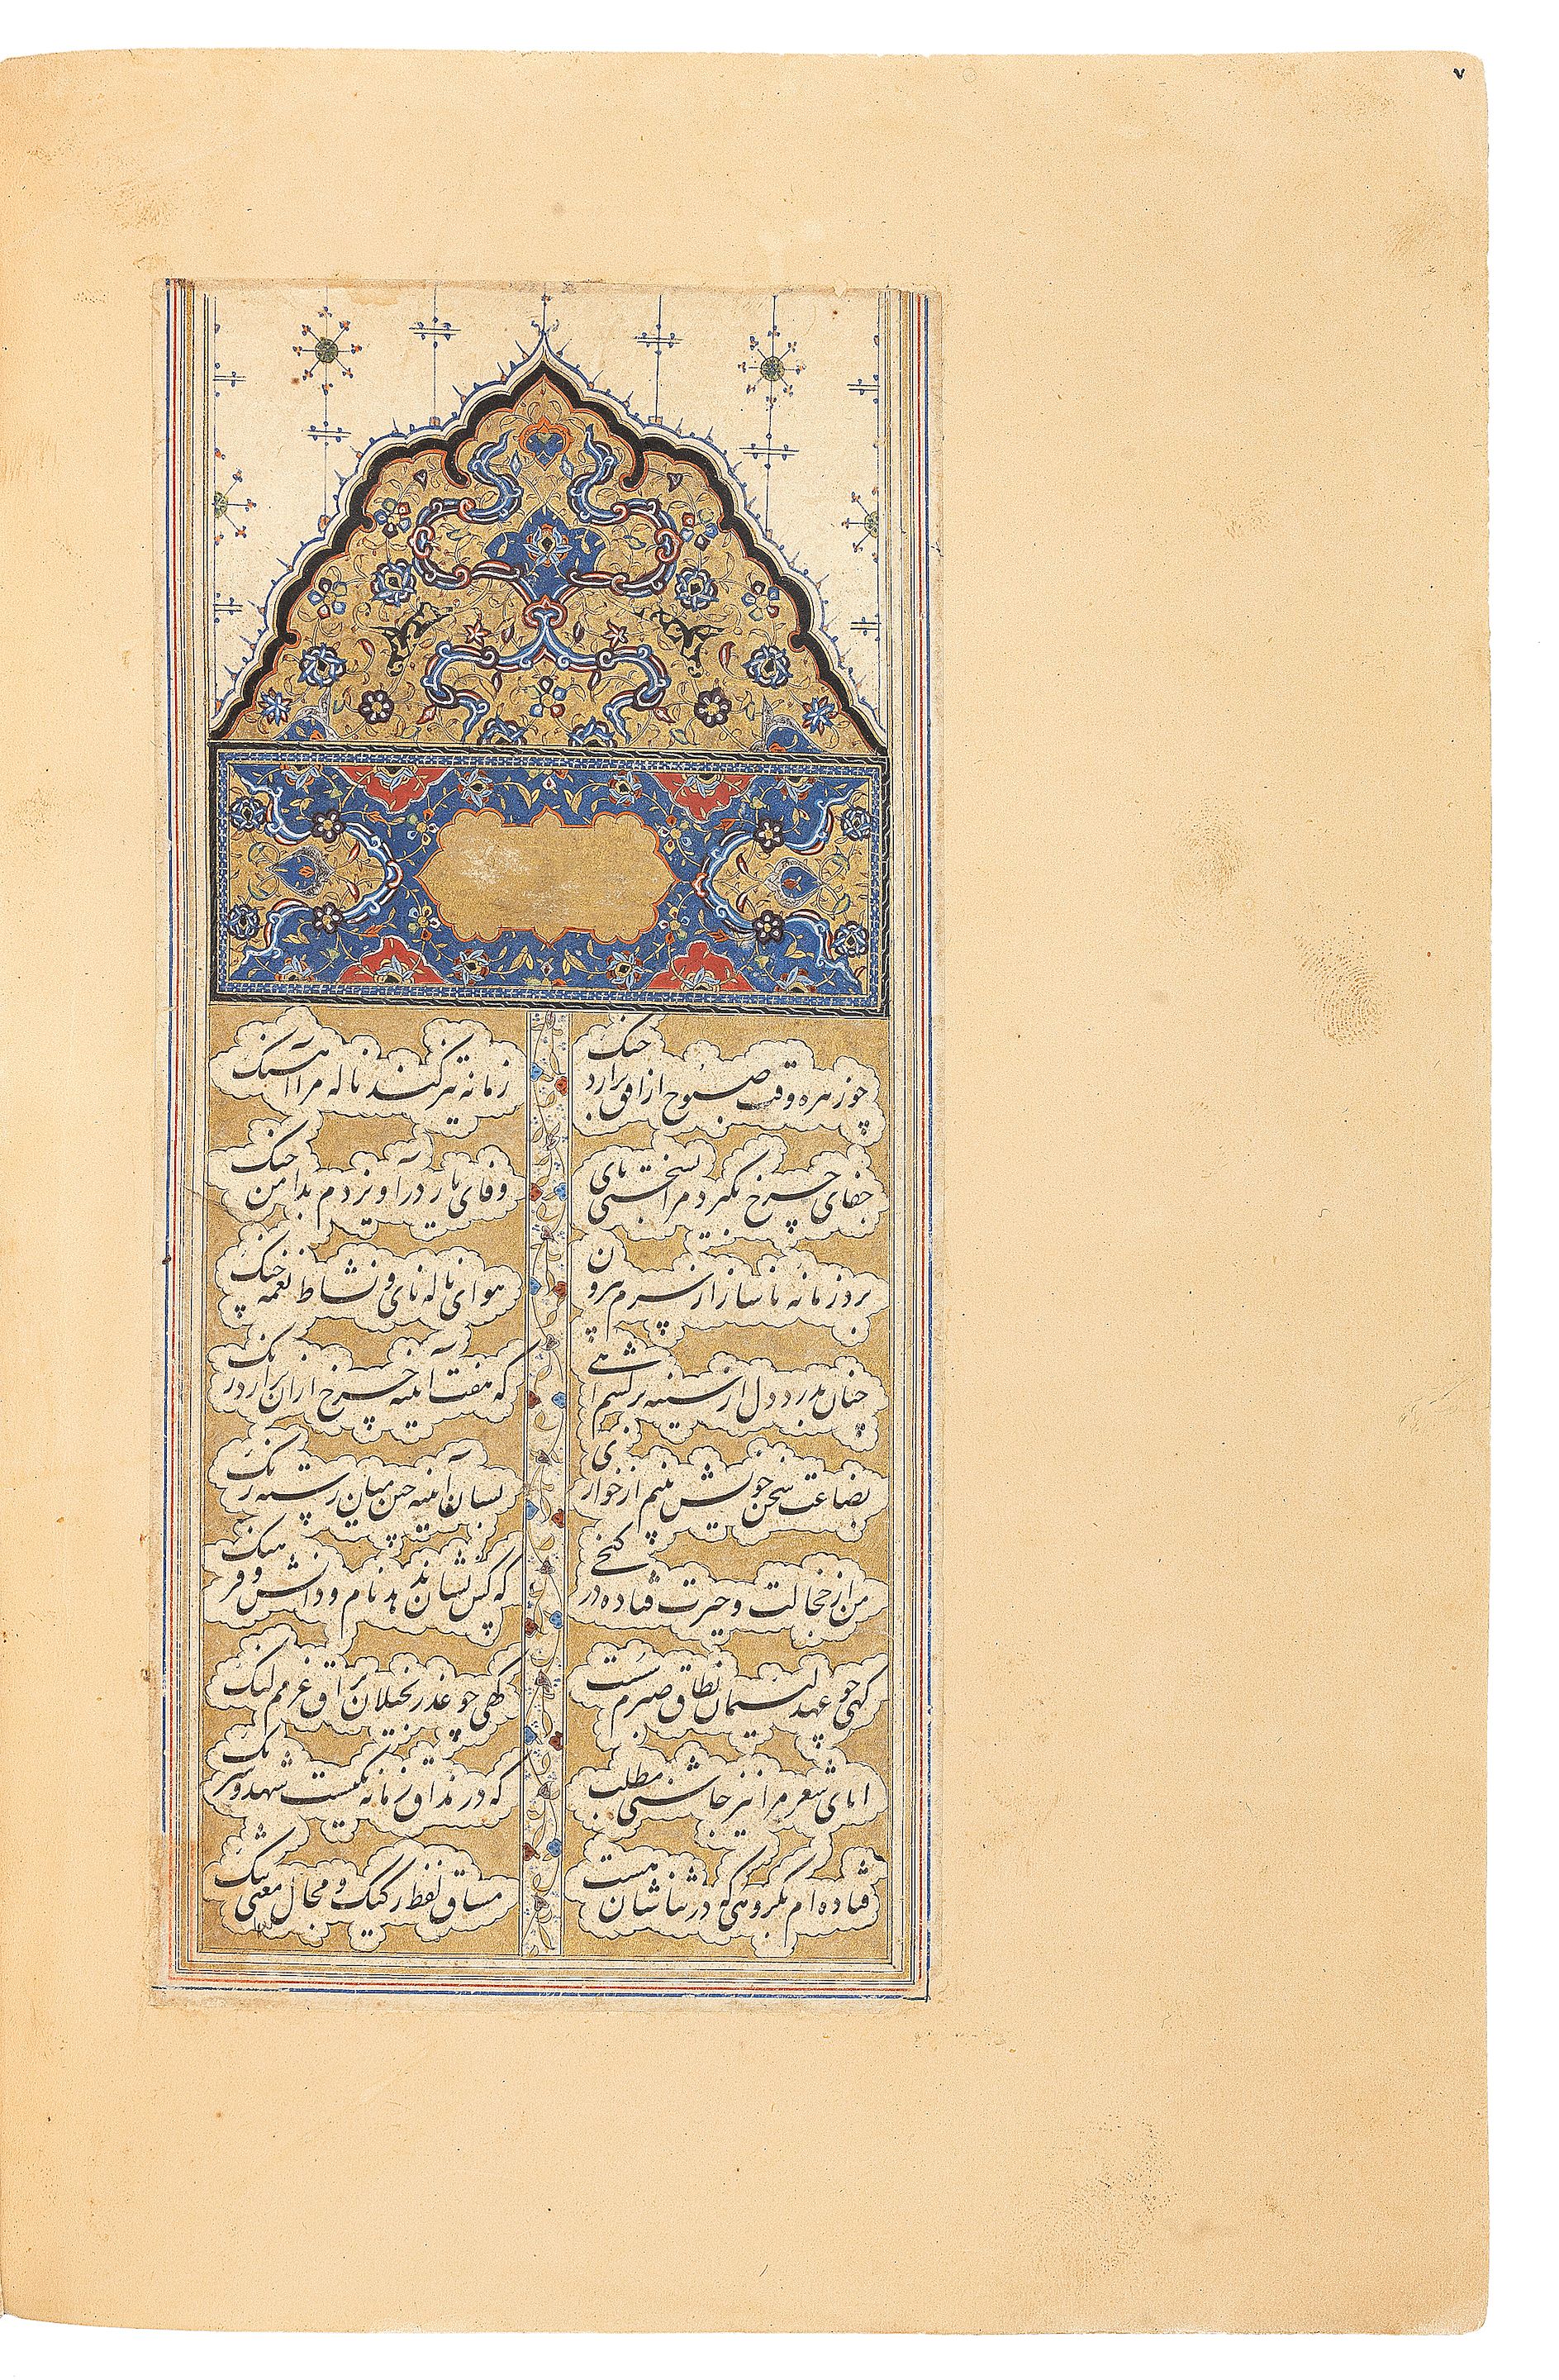 ٧
چو زهره وقت صبوح از افق برارد چنک
زمانه تیز کند ناله مرا آهنک
جفای چرخ بگیرد مرا بسختی پای
وفای یار درآویزدم بدامن چنک
برد زمانه ناساز از سرم بیرون
هوای ناله نای و نشاط نغمه چنک
چنان بدرد دل از سینه برکشم اهی
که هفت آینه چرخ ازان برارد زنک
بضاعت سخن خویش بینم از خواری
بسان آینه چین میان رسته زنک
من از خجالت و حیرت فتاده در کنجی
که کس نشان ندهد نام و دانش و فرهنک
کهی چو عهد لئیمان نطاق صبرم سست
کهی چو عذر بخیلان براق عزمم لنک
ابای شعر مرا نیز چاشنی مطلب
که در مذاق زمانه یکیست شهد و شرنک
فتاده ام بگروهی که در ثناشان هست
مساق لفظ رکیک و مجال معنی تنک